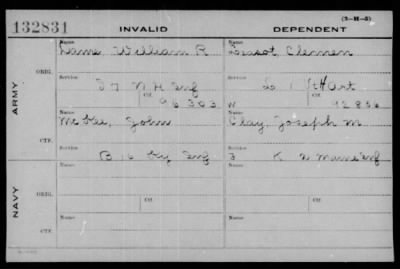 (3-H-5)
132831 INVALID DEPENDENT
ARMY
ORIG.
Name Name
Lane, William R , Clemen
Service Service
I 7 N H Inf L 1 Vt H Art
Ctf. Ctf.
96 303 W 92 856
CTF.
Name Name
McKee, John Clay, Joseph M
Service Service
B 16 Ky Inf F K 2 Maine Inf
NAVY
ORIG.
Name Name
Service Service
Ctf. Ctf.
CTF.
Name Name